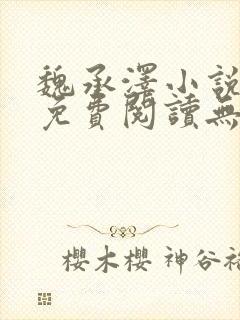 魏承澤小說
免費閱讀無
櫻木櫻 神谷裕